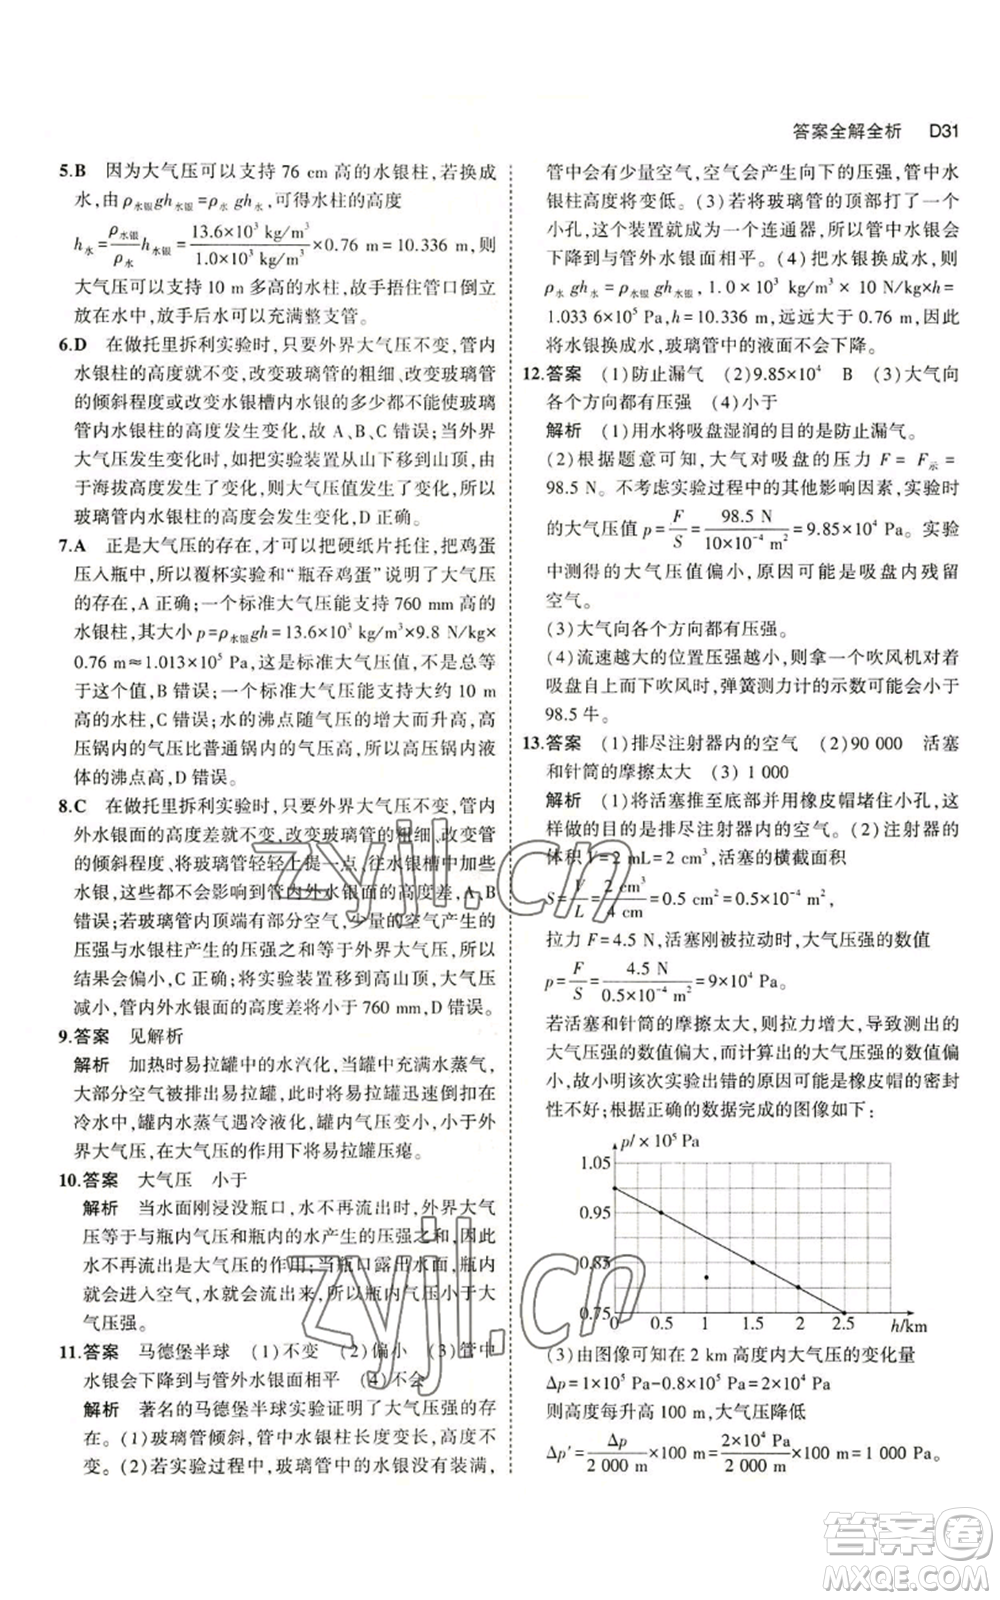 答案全解全析 D31
5.B 因为大气压可以支持 76 cm 高的水银柱,若换成
水,由 ρ水银gh水银=ρ水 gh水,可得水柱的高度
h水=ρ水银/ρ水 h水银=13.6×10³ kg/m³/1.0×10³ kg/m³×0.76 m=10.336 m,则
大气压可以支持 10 m 多高的水柱,故手捂住管口倒立
放在水中,放手后水可以充满整支管。
6.D 在做托里拆利实验时,只要外界大气压不变,管内
水银柱的高度就不变,改变玻璃管的粗细、改变玻璃管
的倾斜程度或改变水银槽内水银的多少都不能使玻璃
管内水银柱的高度发生变化,故 A、B、C 错误;当外界
大气压发生变化时,如把实验装置从山下移到山顶,由
于海拔高度发生了变化,则大气压值发生了变化,所以
玻璃管内水银柱的高度会发生变化,D 正确。
7.A 正是大气压的存在,才可以把硬纸片托住,把鸡蛋
压入瓶中,所以覆杯实验和“瓶吞鸡蛋”说明了大气压
的存在,A 正确;一个标准大气压能支持 760 mm 高的
水银柱,其大小 p=ρ水银gh=13.6×10³ kg/m³×9.8 N/kg×
0.76 m≈1.013×10⁵ Pa,这是标准大气压值,不是总等
于这个值,B 错误;一个标准大气压能支持大约 10 m
高的水柱,C 错误;水的沸点随气压的增大而升高,
高压锅内的气压比普通锅内的气压高,所以高压锅内液
体的沸点高,D 错误。
8.C 在做托里拆利实验时,只要外界大气压不变,管内
外水银面的高度差就不变,改变玻璃管的粗细、改变管
的倾斜程度、将玻璃管轻轻上提一点、往水银槽中加些
水银,这些都不会影响管内外水银面的高度差,A、B
错误;若玻璃管内顶端有部分空气,少量的空气产生的
压强与水银柱产生的压强之和等于外界大气压,所以
结果会偏小,C 正确;将实验装置移到高山顶,大气压
减小,管内外水银面的高度差将小于 760 mm,D 错误。
9.答案 见解析
解析 加热时易拉罐中的水汽化,当罐中充满水蒸气,
大部分空气被排出易拉罐,此时将易拉罐迅速倒扣在
冷水中,罐内水蒸气遇冷液化,罐内气压变小,外界大气
压不变,在大气压的作用下将易拉罐压瘪。
10.答案 大气压 小于
解析 当水面刚浸没瓶口,水不再流出时,外界大气
压等于与瓶内气压和瓶内的水产生的压强之和,因此
水不再流出是大气压的作用;当瓶口露出水面,瓶内
就会进入空气,水就会流出来,所以瓶内气压小于大
气压强。
11.答案 马德堡半球 (1)不变 (2)偏小 (3)管中
水银会下降到与管外水银面相平 (4)不会
解析 著名的马德堡半球实验证明了大气压强的存
在。(1)玻璃管倾斜,管中水银柱长度变长,高度不
变。(2)若实验过程中,玻璃管中的水银没有装满,
管中会有少量空气,空气会产生向下的压强,管中水
银柱高度将变低。(3)若将玻璃管的顶部打了一个
小孔,这个装置就成为一个连通器,所以管中水银会
下降到与管外水银面相平。(4)把水银换成水,则
ρ水 gh水=ρ水银 gh水银,1.0×10³ kg/m³×10 N/kg×h=
1.033 6×10⁵ Pa,h=10.336 m,远远大于 0.76 m,因此
将水银换成水,玻璃管中的液面不会下降。
12.答案 (1)防止漏气 (2)9.85×10⁴ B (3)大气向
各个方向都有压强 (4)小于
解析 (1)用水将吸盘湿润的目的是防止漏气。
(2)根据题意可知,大气对吸盘的压力 F= F示=
98.5 N。不考虑实验过程中的其他影响因素,实验时
的大气压值 p=F/S=98.5 N/10×10⁻⁴ m²=9.85×10⁴ Pa。实验
中测得的大气压值偏小,原因可能是吸盘内残留
空气。
(3)大气向各个方向都有压强。
(4)流速越大的位置压强越小,则拿一个吹风机对着
吸盘自上而下吹风时,弹簧测力计的示数可能会小于
98.5 牛。
13.答案 (1)排尽注射器内的空气 (2)90 000 活塞
和针筒的摩擦太大 (3) 1 000
解析 (1)将活塞推至底部并用橡皮帽堵住小孔,这
样做的目的是排尽注射器内的空气。(2)注射器的
体积 V=2 mL=2 cm³,活塞的横截面积
S=V/L=2 cm³/4 cm=0.5 cm²=0.5×10⁻⁴ m²,
拉力 F=4.5 N,活塞刚被拉动时,大气压强的数值
p=F/S=4.5 N/0.5×10⁻⁴ m²=9×10⁴ Pa。
若活塞和针筒的摩擦太大,则拉力增大,导致测出的
大气压强的数值偏大,而计算出的大气压强的数值偏
小,故小明该次实验出错的原因可能是橡皮帽的密封
性不好;根据正确的数据完成的图像如下:
p/×10⁵ Pa
1.05
0.95
0.85
0.75
0 0.5 1 1.5 2 2.5 h/km
(3)由图像可知在 2 km 高度内大气压的变化量
Δp=1×10⁵ Pa-0.8×10⁵ Pa=2×10⁴ Pa
则高度每升高 100 m,大气压降低
Δp'=Δp/2 000 m×100 m=2×10⁴ Pa/2 000 m×100 m=1 000 Pa。
zyjl.cn
zyjl.cn
答案圈
MXQE.COM